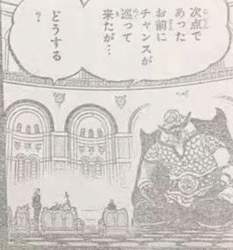 次点で
あった
お前に
チャンスが
巡って
来たが…
どうする
？